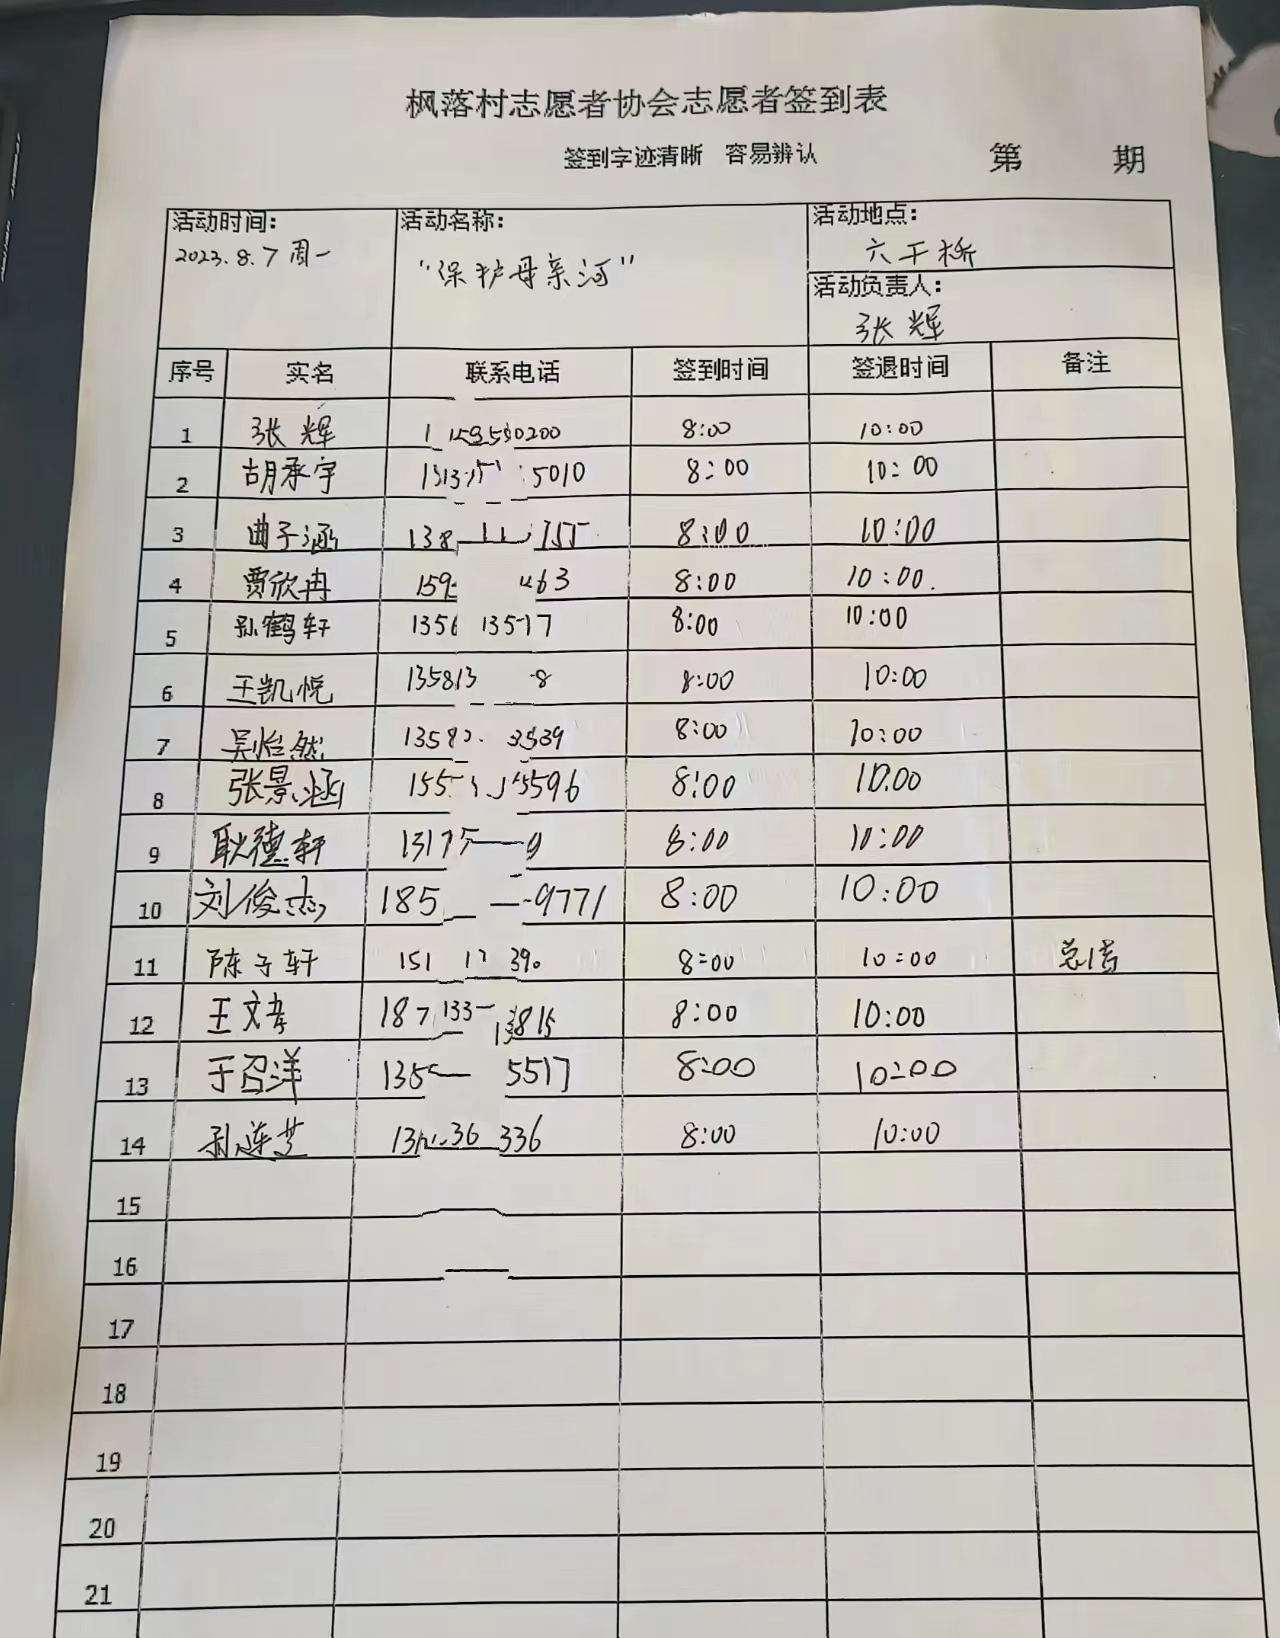 枫落村志愿者协会志愿者签到表
签到字迹清晰 容易辨认 第 期
活动时间: 活动名称: 活动地点:
2023.8.7 周一 "保护母亲河" 六干桥
活动负责人:
张辉
序号 实名 联系电话 签到时间 签退时间 备注
1 张辉 8:00 10:00
2 胡承宇 5010 8:00 10:00
3 曲子涵 138 8:00 10:00
4 贾欣冉 159 63 8:00 10:00.
5 孙鹤轩 1356 13517 8:00 10:00
6 王凯悦 135813 8 8:00 10:00
7 吴怡然 1358 3539 8:00 10:00
8 张景涵 155 5596 8:00 10:00
9 耿德轩 13175 9 8:00 10:00
10 刘俊杰 185 9771 8:00 10:00
11 陈子轩 151 390 8:00 10:00
12 王文孝 187 133 13815 8:00 10:00
13 于召洋 135 5517 8:00 10:00
14 孙连芝 36 336 8:00 10:00
15
16
17
18
19
20
21